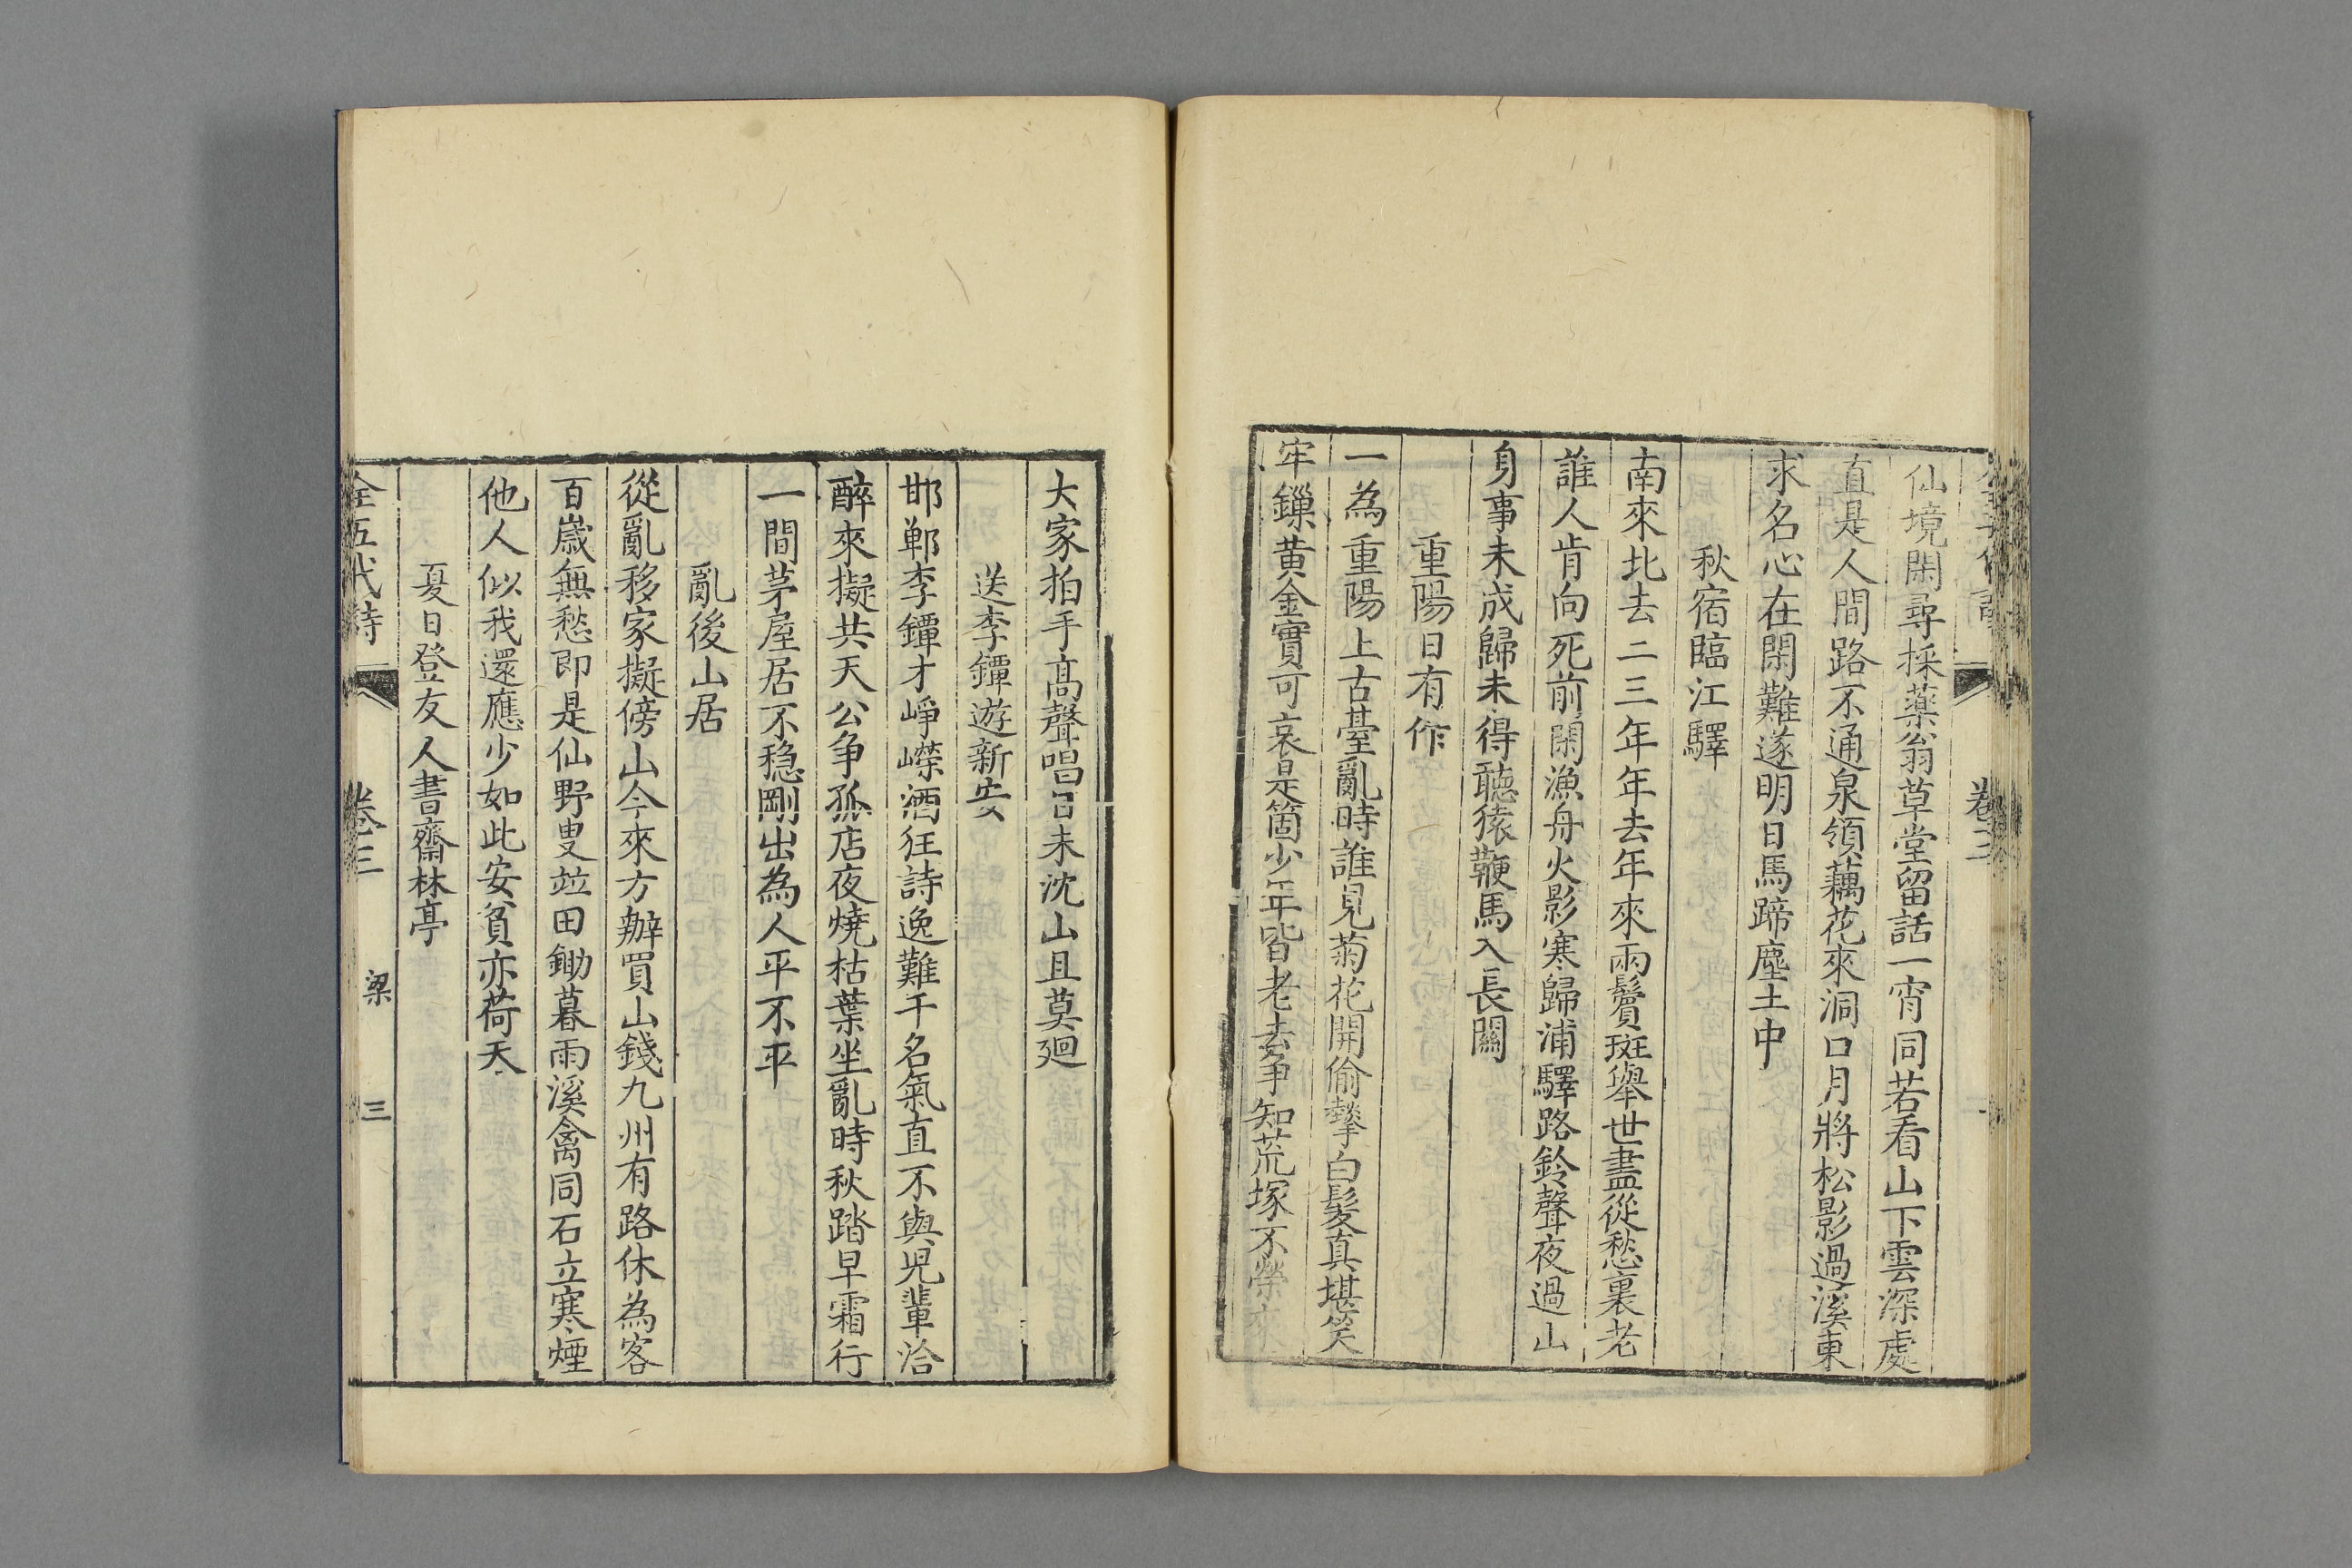 卷三
仙境閑尋採藥翁草堂留話一宵同若看山下雲深處
直是人間路不通泉領藕花來洞口月將松影過溪東
求名心在閑難遂明日馬蹄塵土中
秋宿臨江驛
南來北去二三年年去年來兩鬢斑舉世盡從愁裏老
誰人肯向死前閑漁舟火影寒歸浦驛路鈴聲夜過山
身事未成歸未得聽猿鞭馬入長關
重陽日有作
一為重陽上古臺亂時誰見菊花開偷撏白髮真堪笑
牢鏁黃金實可哀是箇少年皆老去爭知荒塚不榮來
大家拍手高聲唱日未沈山且莫廻
送李鐔遊新安
邯鄲李鐔才崢嶸酒狂詩逸難干名氣直不與兒輩洽
醉來擬共天公爭孤店夜燒枯葉坐亂時秋踏早霜行
一間茅屋居不穩剛出為人平不平
亂後山居
從亂移家擬傍山今來方辦買山錢九州有路休為客
百歲無愁即是仙野叟竝田鋤暮雨溪禽同石立寒煙
他人似我還應少如此安貧亦荷天
夏日登友人書齋林亭
全五代詩 卷三 梁 三